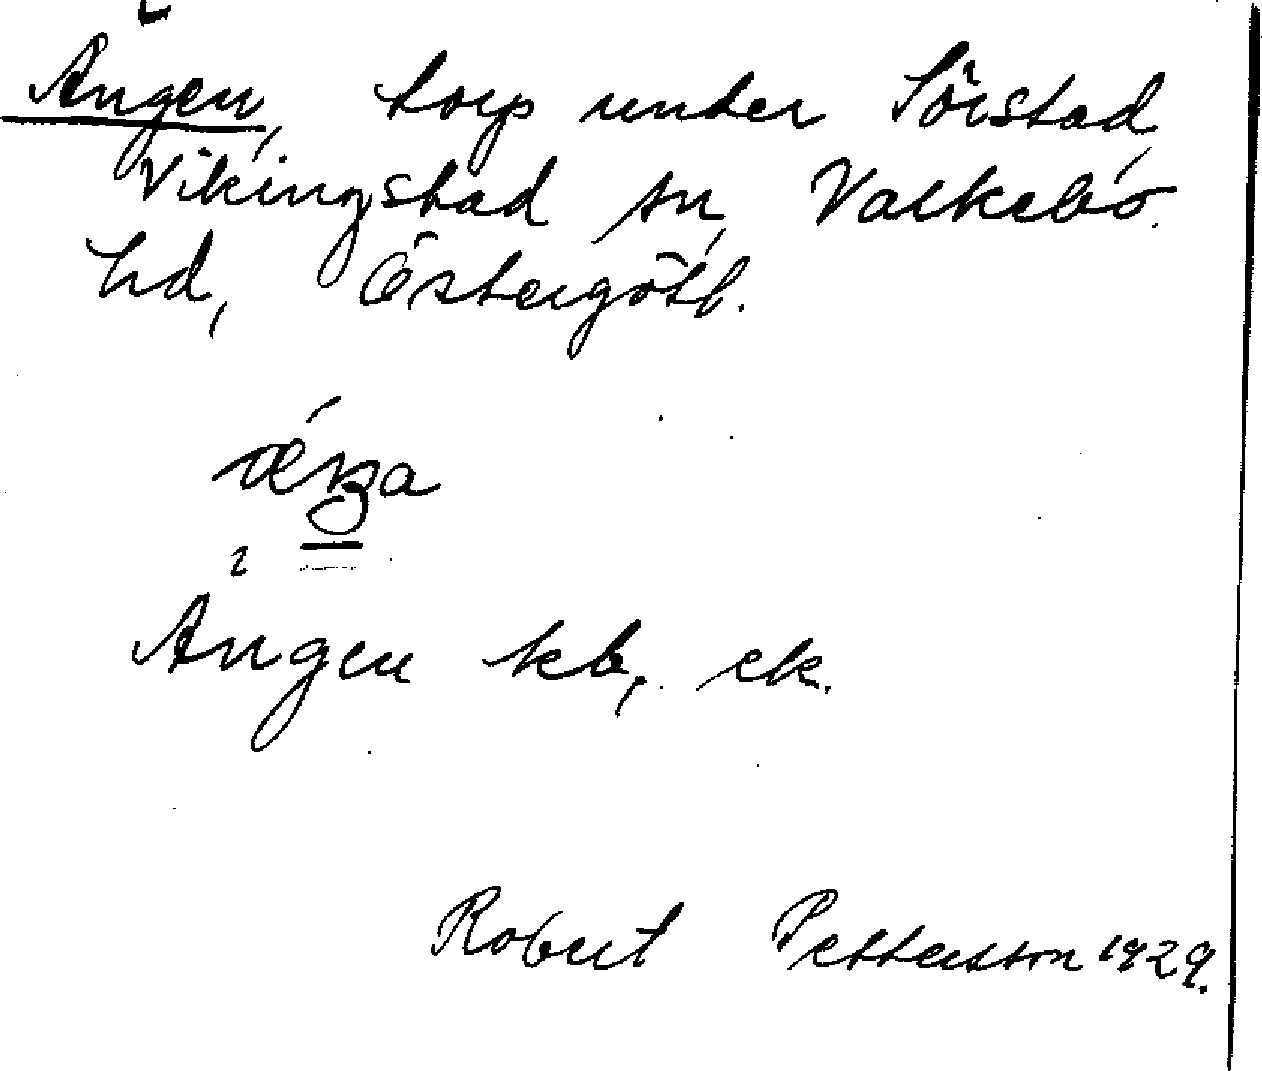 Ängen, torp under Sörstad,
Vikingstad sn, Valkebo
hd, Östergötl.
Ängen kb, ek.
Robert Pettersson 1929.